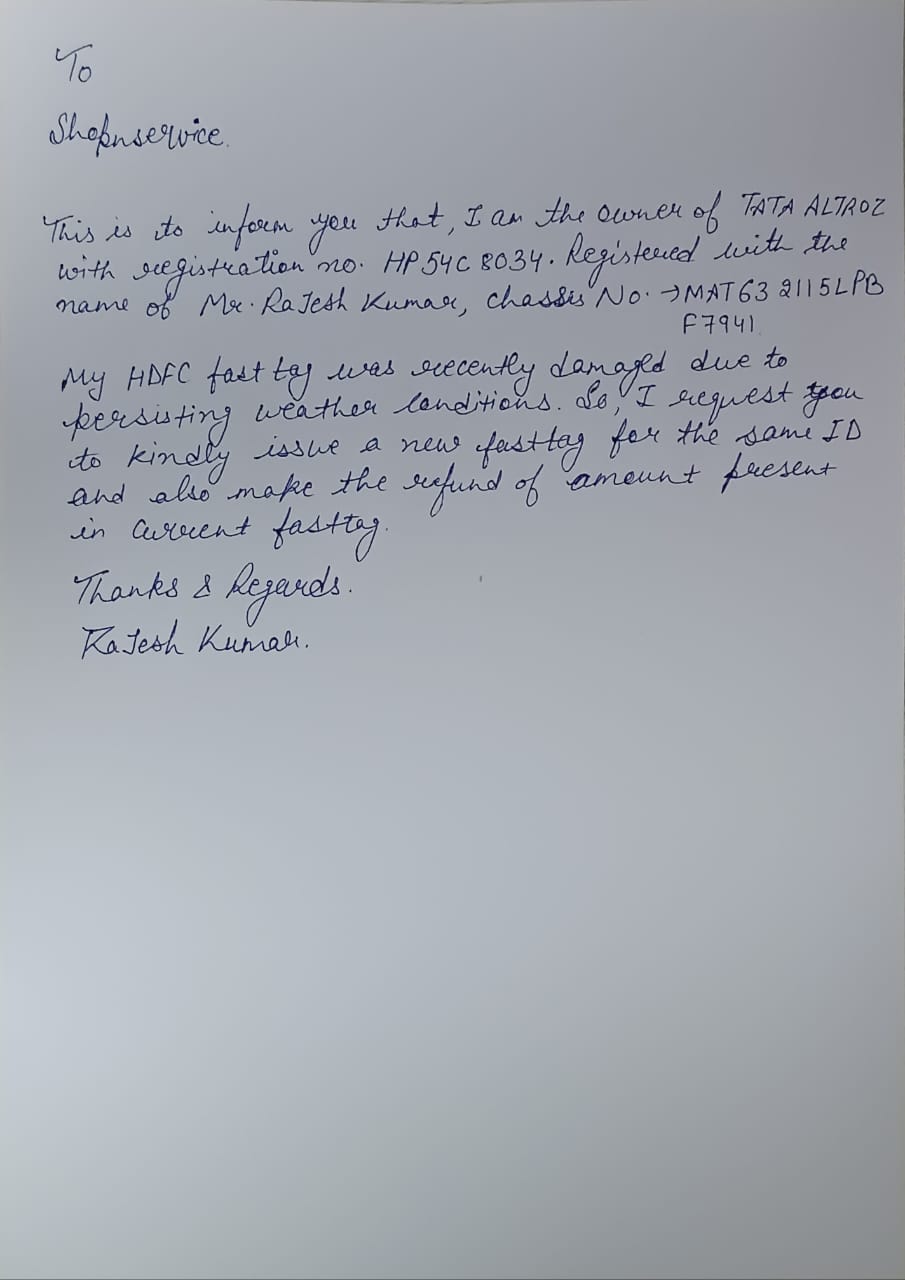 To
Shopnservice.
This is to inform you that, I am the owner of TATA ALTROZ
with registration no. HP54C8034. Registered with the
name of Mr. Rajesh Kumar, chassis No. → MAT632115LPB
F7941
My HDFC fast tag was recently damaged due to
persisting weather conditions. So, I request you
to kindly issue a new fasttag for the same ID
and also make the refund of amount present
in current fasttag.
Thanks & Regards.
Rajesh Kumar.